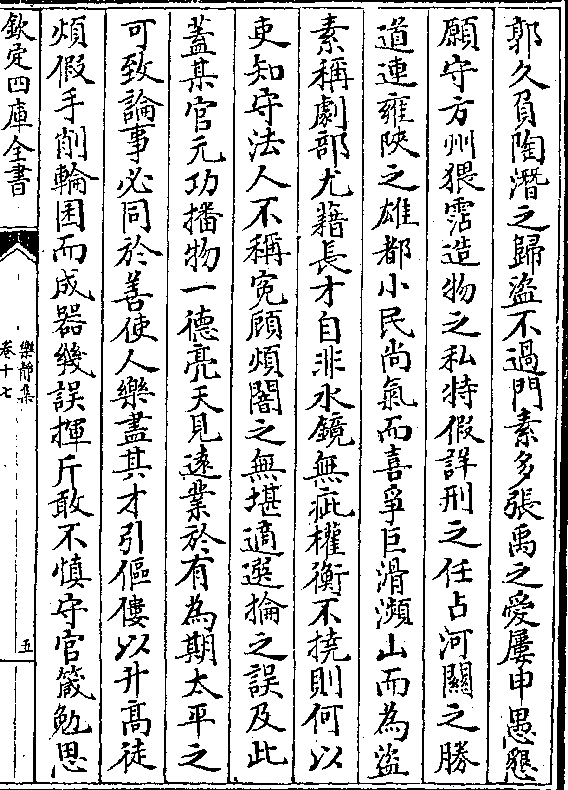 郭久負陶潛之歸盜不過門素多張禹之愛屢申愚懇
願守方州猥霑造物之私特假詳刑之任占河關之勝
道連雍陜之雄都小民尚氣而喜爭巨滑瀕山而為盜
素稱劇部尤藉長才自非水鏡無疵權衡不撓則何以
吏知守法人不稱寃顧煩闇之無堪適選掄之誤及此
蓋某官元功播物一德亮天見遠業於有為期太平之
可致論事必同於善使人樂盡其才引傴僂以升髙徒
煩假手削輪囷而成器幾誤揮斤敢不慎守官箴勉思
欽定四庫全書
樂靜集
卷十七
五